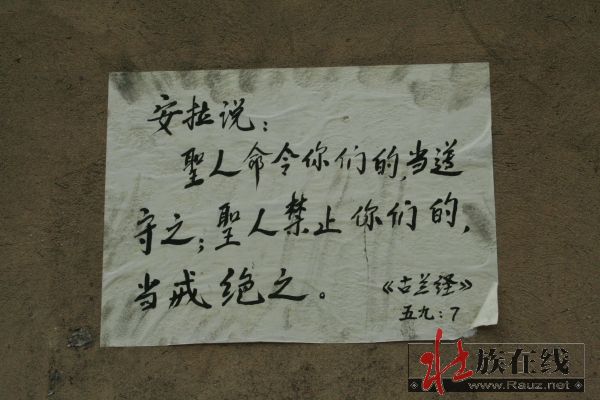 安拉说:
聖人命令你们的,当遵
守之;聖人禁止你们的,
当戒绝之。
《古兰经》
五九:7
壮族在线
www.Rauz.net